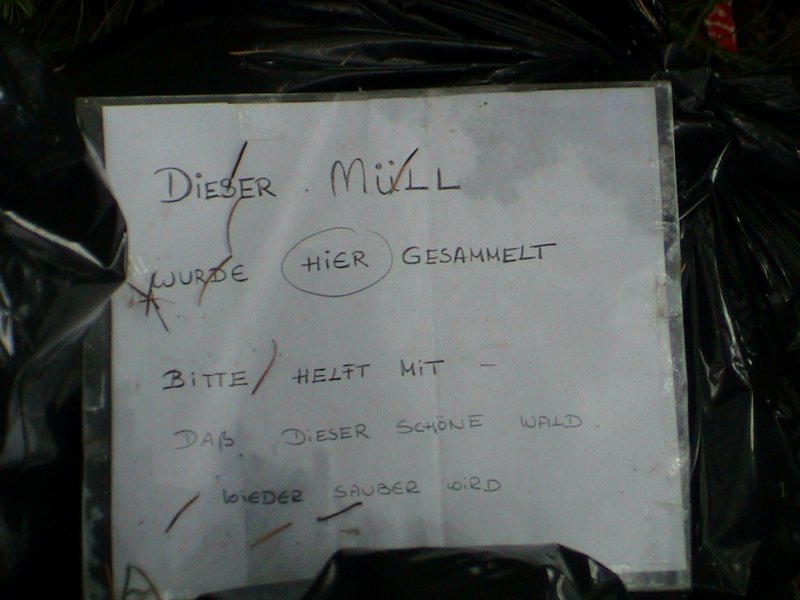 DIESER MÜLL
WURDE HIER GESAMMELT
BITTE HELFT MIT –
DAß DIESER SCHÖNE WALD
WIEDER SAUBER WIRD